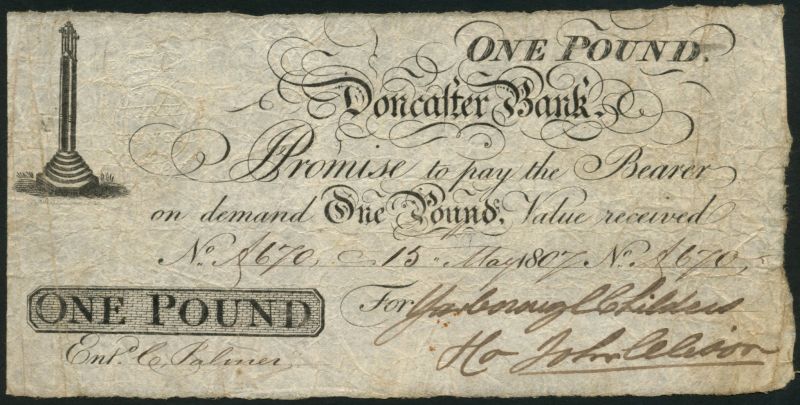 ONE POUND.
Doncaster Bank.
I Promise to pay the Bearer
on demand One Pound, Value received
No. A670, 15 May 1807 No. A670,
For Yarborough Childers
ONE POUND
& Co John
Entd. C. Palmer